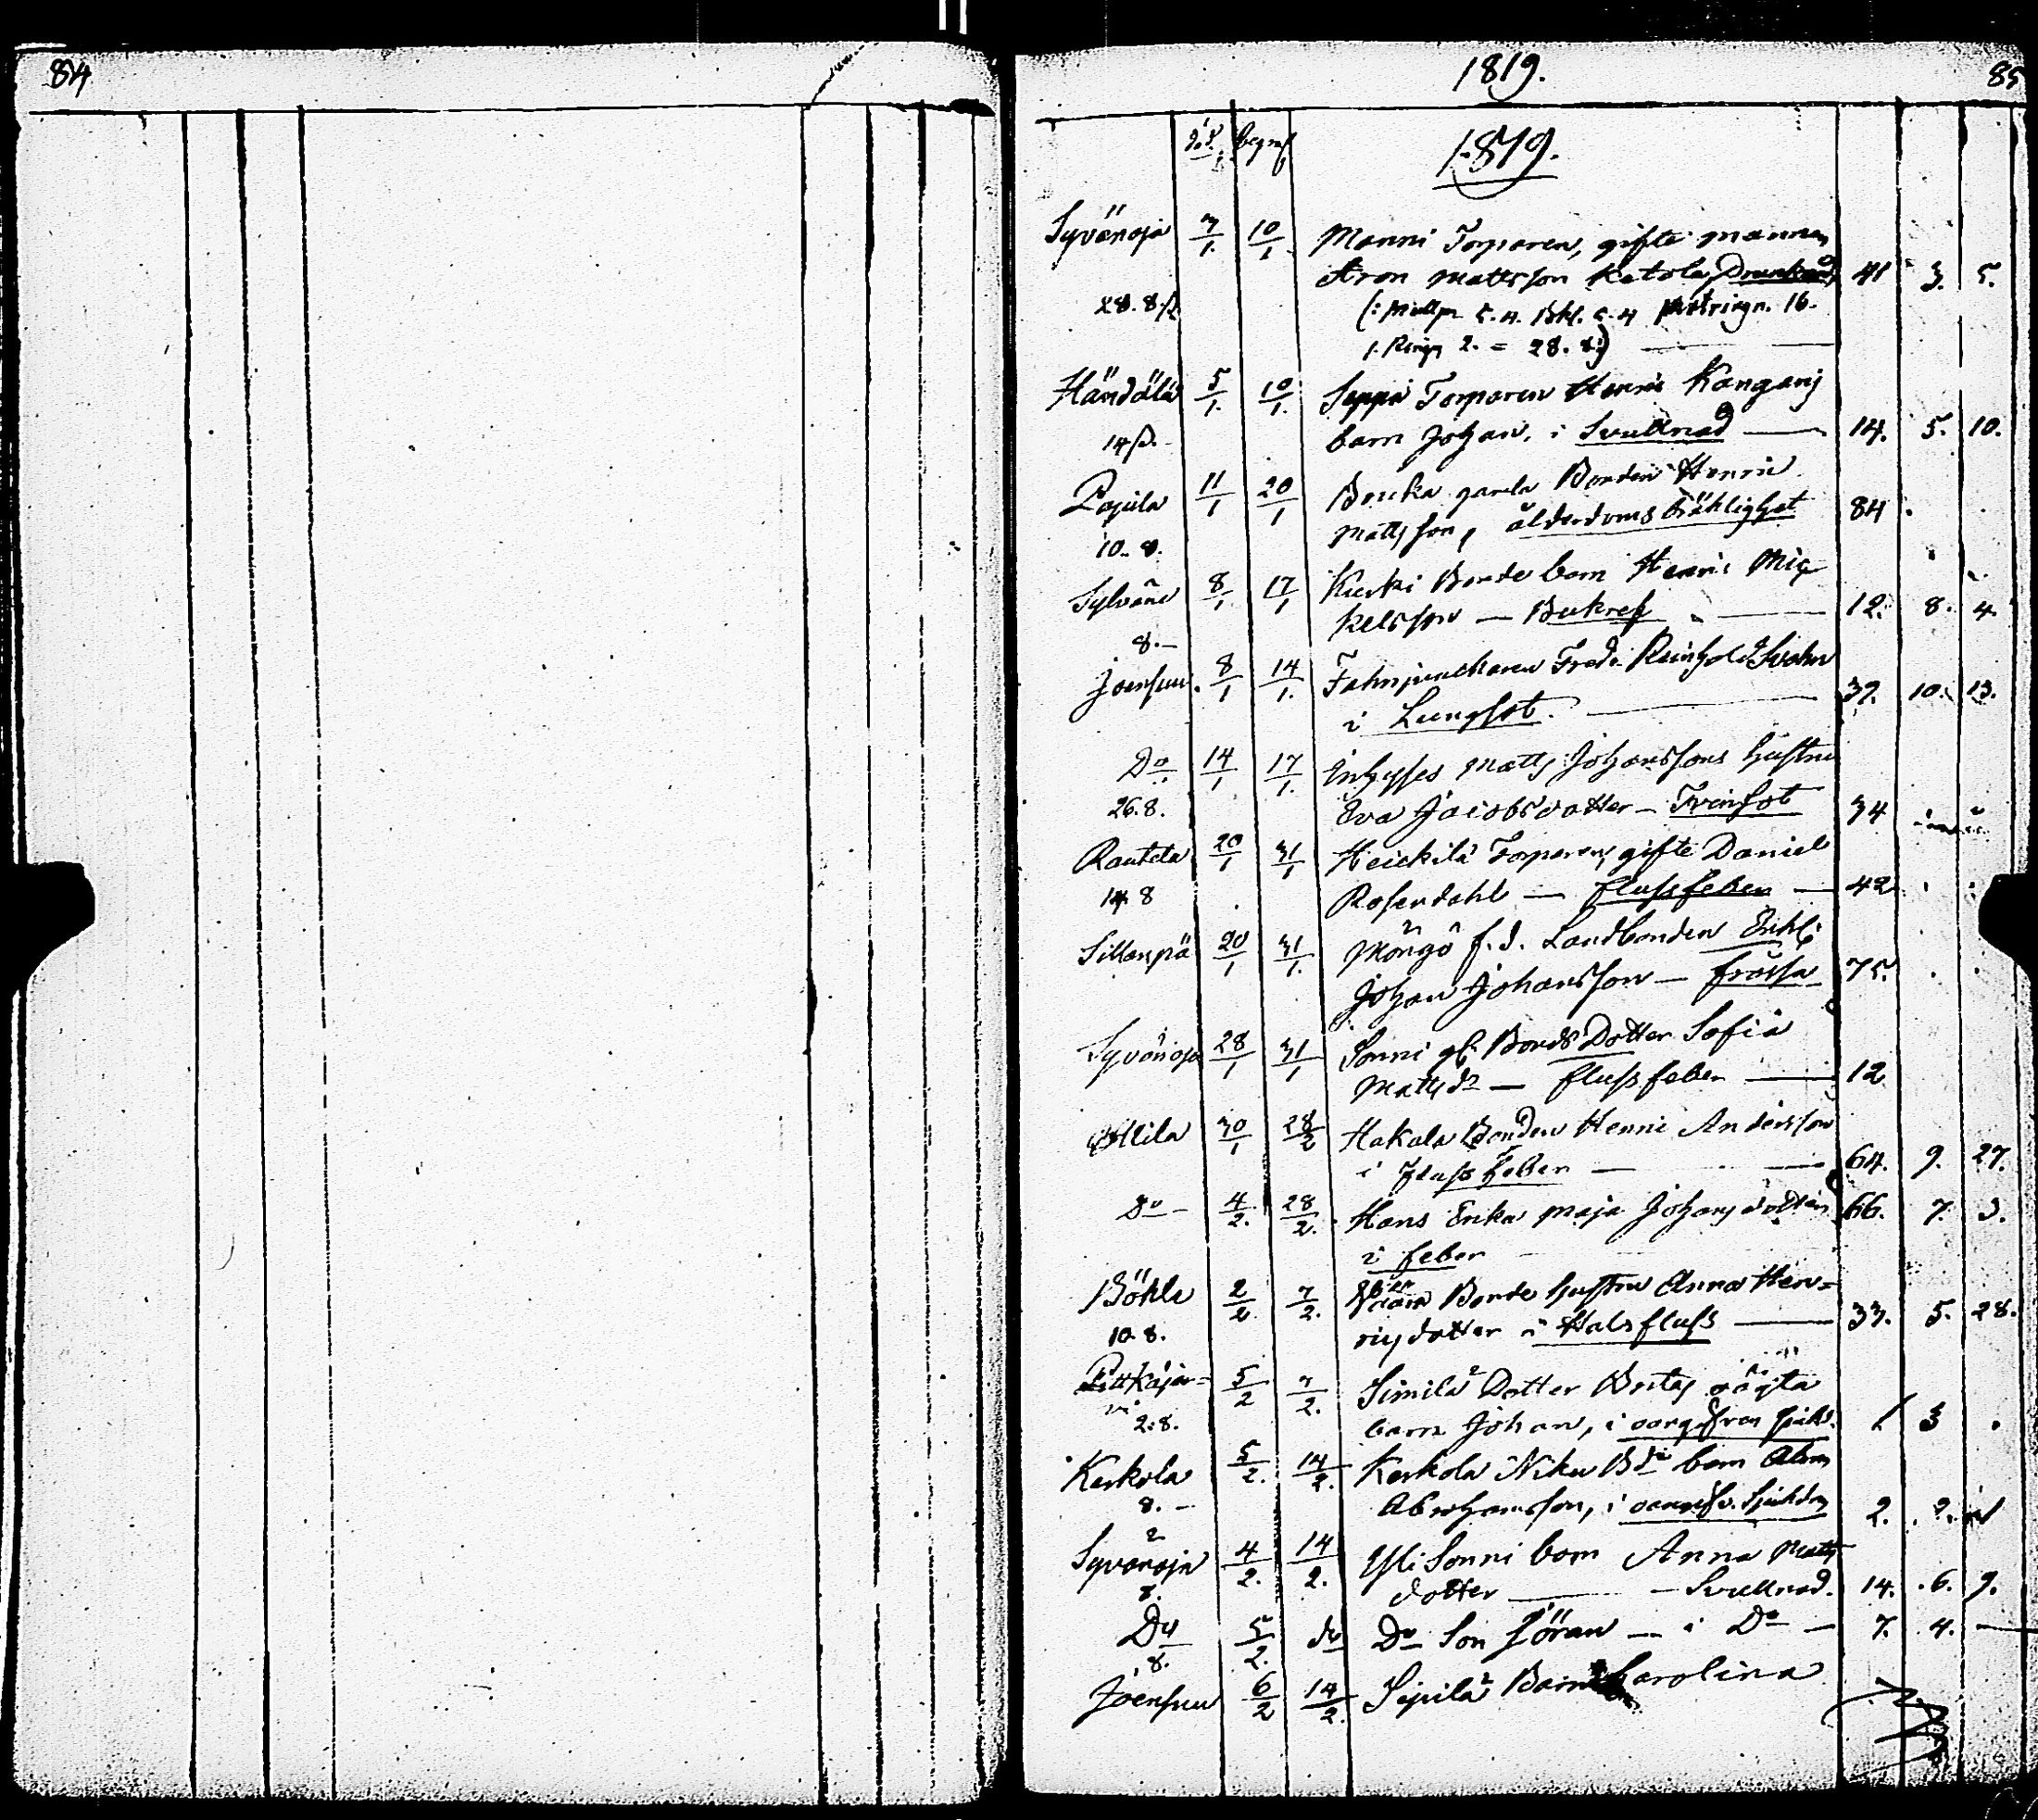 84
1819.
85
död. begraf
1819.
Syvänoja 7/1. 10/1. Manni Torparen, gifte mannen
Aron Mattsson Ketola, Drunknad, 41 3. 5.
28. 8.
1. Ringn 2. = 28. 8:)
Händälä 5/1. 10/1. Seppä Torparen Henric Kangars
14 barn Johan, i Svullnad — 14. 5. 10.
11/1 20/1 gamla Bonden Henric
Mattsson, ålderdoms bräklighet 84
10. 8.
Sylvänä 8/1 17/1 Kurki Bonde barn Henric Mic-
kelsson — Bukref — 12. 8. 4.
8. —
Joensuu. 8/1 14/1. Fahnjunckaren Fredr. Reinhold Svahn
i Lungsot. — 37. 10. 13.
Do 14/1 17/1. Inhyses Matts Johanssons hustru
26. 8. Eva Jacobsdotter — Tvinsot 34
Rautela 20/1 31/1 Heickilä Torparen, gifte Daniel
14 8 Rosendahl — flussfeber — 42
Sillanpä 20/1 31/1. f. d. Landbonden Enkl.
Johan Johansson — frossa 75.
Syvänoja 28/1 31/1 Sonni Bonds Dotter Sofia
Mattsdr — flussfeber — 12
Ollila 30/1 28/2 Hakala Bonden Henric Andersson
i Flussfeber — 64. 9. 27.
Do — 4/2. 28/2. Hans Enka Maja Johansdotter 66. 7. 3.
i feber
Böhle 2/2 7/2. Bonde hustru Anna Hen-
10. 8. ricsdotter i Halsfluss — 33. 5. 28.
Pitkäjär-
vi 5/2 7/2. Simila Dotter oägta
2. 8. barn Johan, i oangifven sjukd. 1 3 .
Kerkola 5/2. 14/2. Kerkola Niku barn Abm
8. — Abrahamsson, i oangifv. Sjukdom 2. 2.
Syvänoja 4/2. 14/2. Yli Sonni barn Anna Matts
8. dotter — Svullnad. 14. 6. 9.
Do 5/2. do Do Son Göran — i Do — 7. 4. —
8.
Joensuu 6/2 14/2. Sipilä Barn Carolina